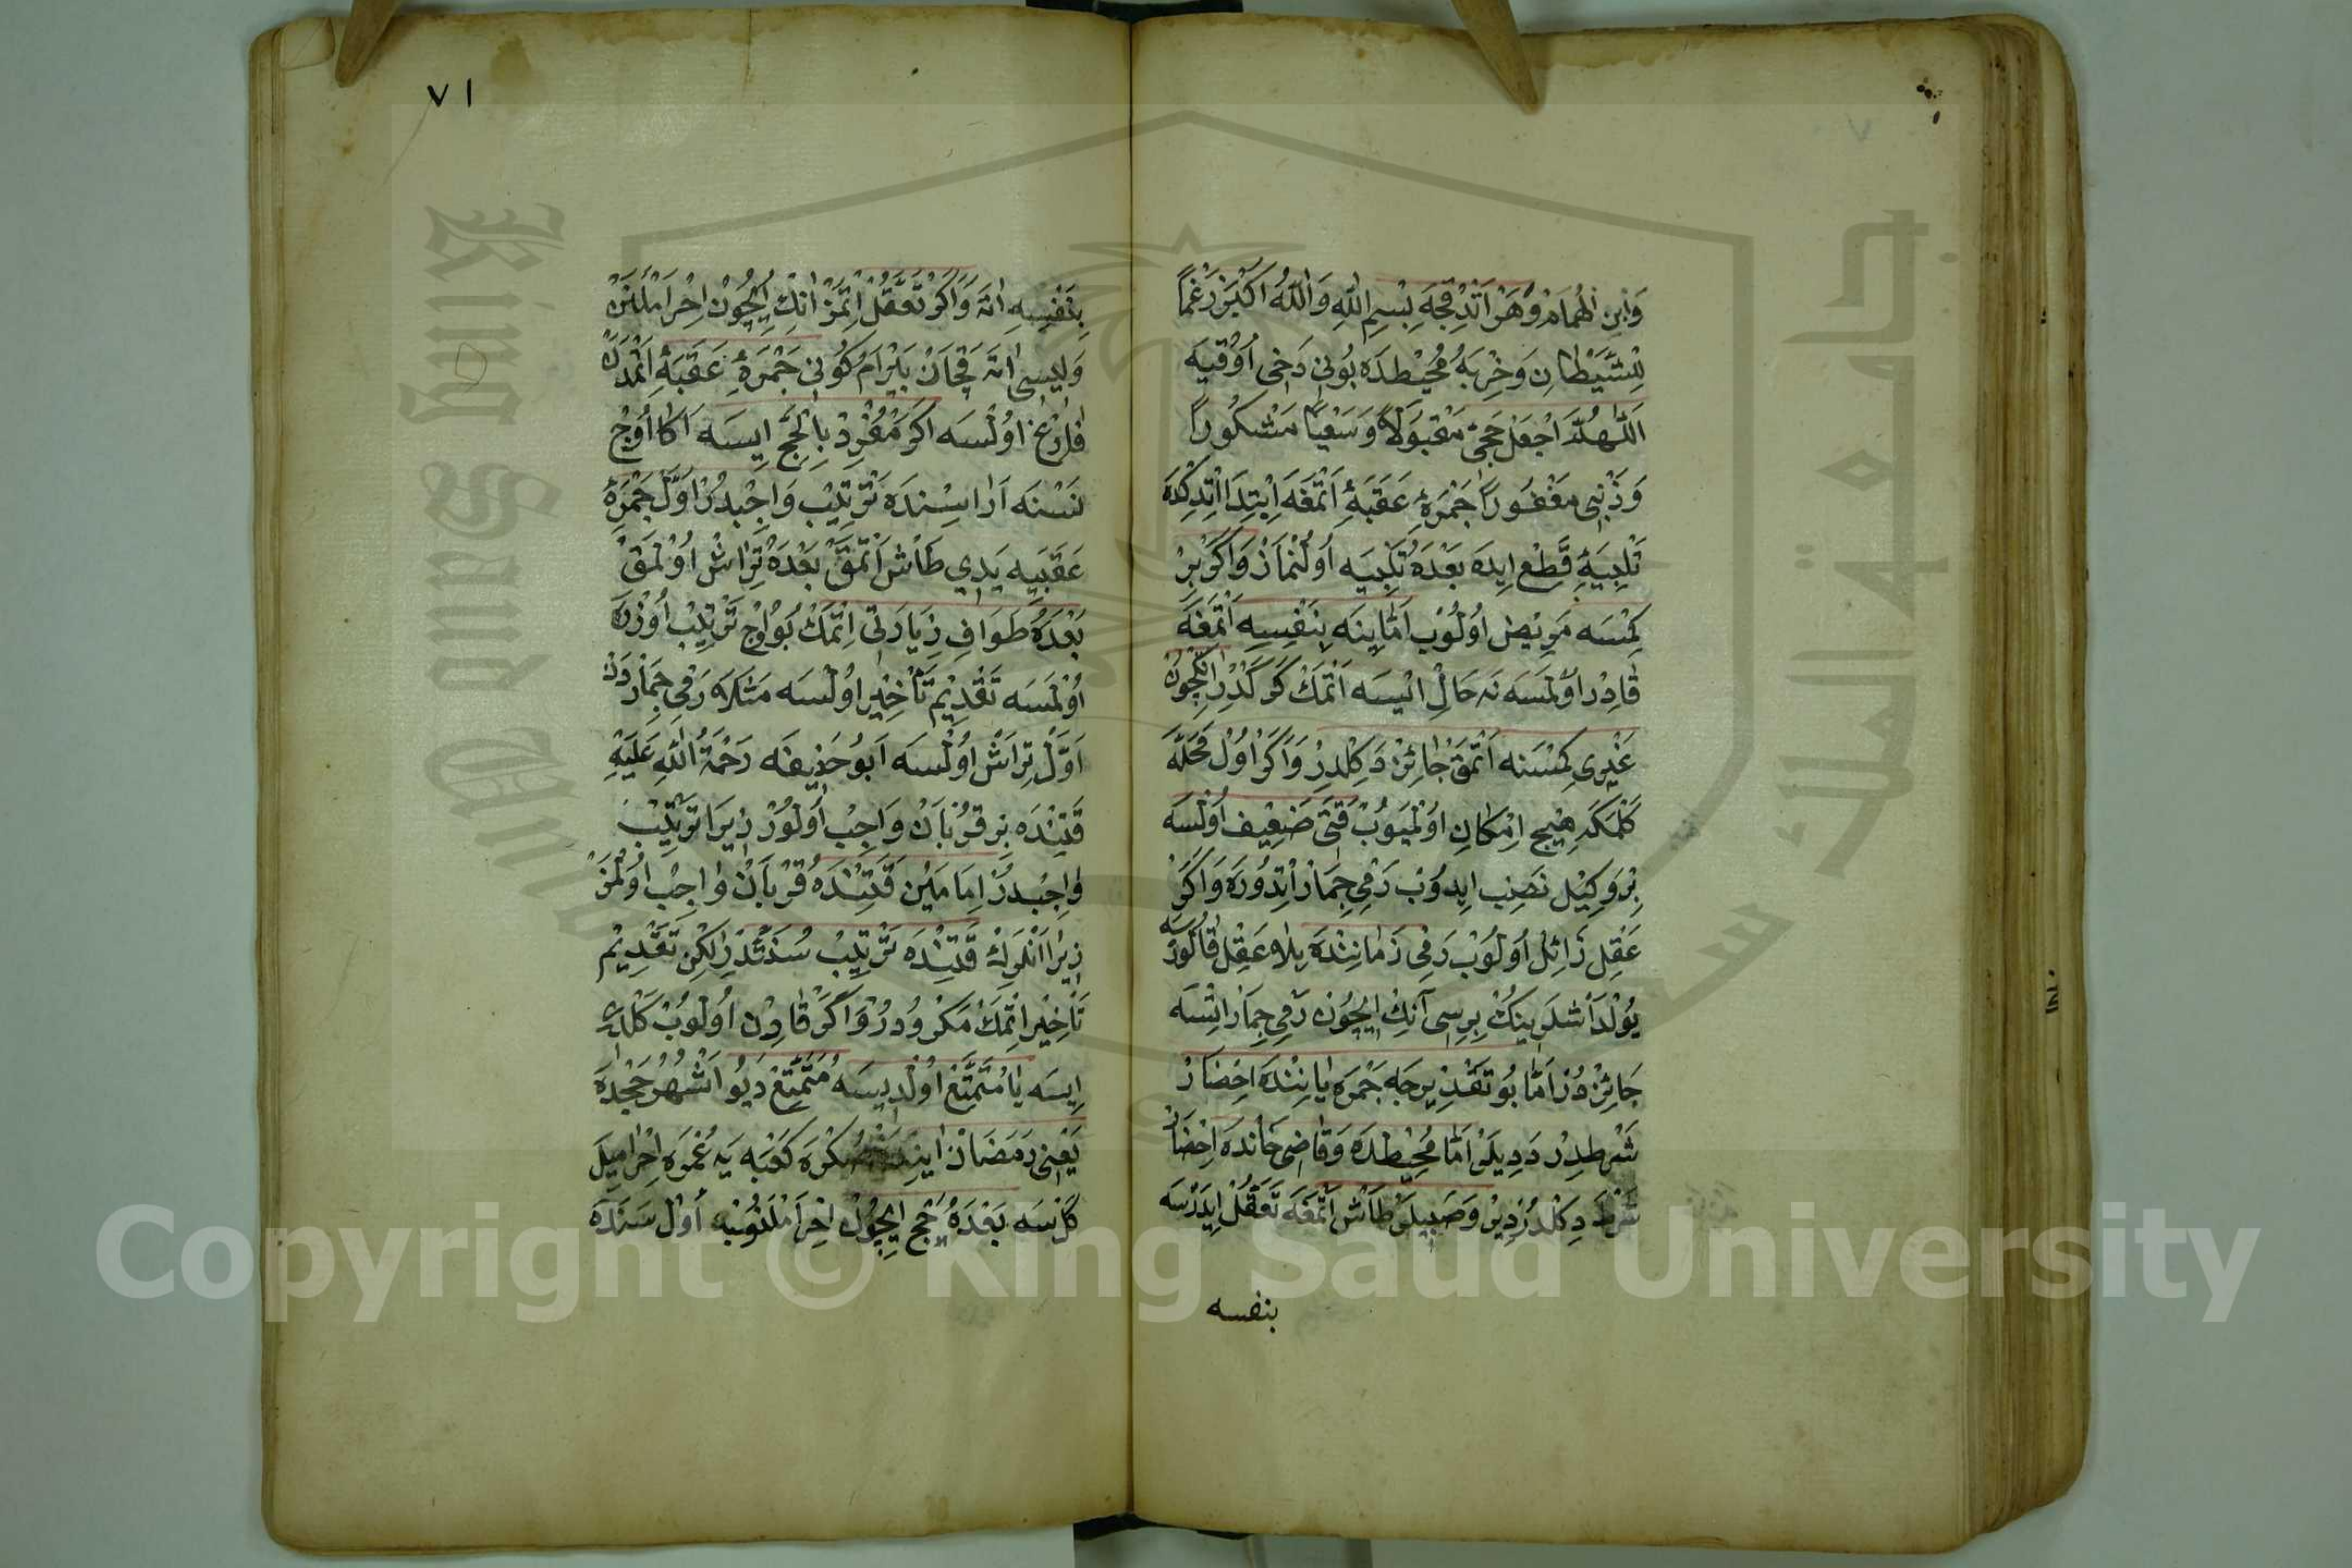 وَابْنِ الْهُمَامْ وَهَرْ اَتْدِقْجَه بِسْمِ اللهِ وَاللهُ اَكْبَرْ رَغْمًا
لِلشَّيْطَانِ وَخِزْبِهِ مُحِيْطدَه بُونِى دَخِى اُوقِيَه
اَللّٰهُمَّ اجْعَلْ حَجِّى مَقْبُولًا وَسَعْيًا مَشْكُورًا
وَذَنْبِى مَغْفُورًا جَمْرَۀِ عَقَبَۀِ اَتْمَغَه اِبْتِدَا اِتْدِكْدَه
تَلْبِيَۀِ قَطْع ايِدَه بَعْدَهُ تَلْبِيَه اُولُنْمَازْ وَاَكَرْ بِرْ
كِمْسَه مَرِيْض اُولُوبْ اَمَّا يِنَه بِنَفْسِهِ اَتْمَغَه
قَادِرْ اُولْمَسَه نَه حَالْ اِيسَه اَتْمَكْ كَرَكْدُرْ انِكْچُونْ
غَيْرِى كِمْسَنَه اَتْمَقْ جَائِزْ دَكِلْدِرْ وَاَكَرْ اُولْ مَحَلَّه
كَلْمَكَه هِيچ اِمْكَانِ اُولْمَيُوبْ قَتِى ضَعِيف اُولْسَه
بِرْ وَكِيْل نَصْب ايِدُوبْ رَمْىِ جِمَارْ اِتْدُورَه وَاَكَرْ
عَقِل زَائِل اُولُوبْ رَمْى زَمَانِنْدَه بِلَا عَقِل قَالُورْسَه
يُولْدَاشْلَرِينُكْ بِرِسِى اَنِكْ اِيچُونْ رَمْىِ جِمَارْ اِتْسَه
جَائِزْ دُرْ اَمَّا بُو تَقْدِيرجَه جَمْرَه يَانِنْدَه اِحْضَارْ
شَرْطدِرْ دَدِيلَرْ اَمَّا مُحِيْطدَه وَقَاضِى خَانْدَه اِحْضَارْ
شَرْط دِكِلْدُرْ دِيرْ وَصَبِيلَرْ طَاشْ اَتْمَغَه تَعَقُّلْ ايِدَرْسَه
بنفسه
٧١
بِنَفْسِهِ اتَه وَاَكَرْ تَعَقُّلْ اِتْمَزْ انِكْ اِيچُونْ اِحْرَامْلَنَنْ
وَلِيسِى اتَه قَچَانْ بَيْرَامْ كُونِى جَمْرَۀِ عَقَبَۀِ اَتْمَدَنْ
فَارِغْ اُولْسَه اَكَرْ مُفْرِدْ بِالْحَجِّ ايِسَه اَكَا اُوچْ
نَسْنَه اَرَاسِنْدَه تَرْتِيْب وَاجِبْدُرْ اَوَّلْ جَمْرَۀِ
عَقَبَيَه يَدِى طَاشْ اَتْمَقْ بَعْدَهُ تِرَاشْ اُولْمَقْ
بَعْدَهُ طَوَافِ زِيَارَتْى اِتْمَكْ بُو اُوچْ تَرْتِيْب اُوزْرَه
اُولْمَسَه تَقْدِيْم تَأْخِيْر اُولْسَه مَثَلَا رَمْىِ جِمَارْدَنْ
اَوَّلْ تِرَاشْ اُولْسَه اَبُو حَنِيفَه رَحْمَةُ اللهِ عَلَيْهِ
قَتِنْدَه بِرْ قُرْبَانْ وَاجِبْ اُولُورْ زِيرَا تَرْتِيْبْ
وَاجِبْدُرْ اِمَامَيْن قَتِنْدَه قُرْبَانْ وَاجِبْ اُولْمَزْ
زِيرَا اَنْلَرِكْ قَتِنْدَه تَرْتِيْبْ سُنَّتْدُرْ لَكِنْ تَقْدِيْم
تَأْخِيْر اِتْمَكْ مَكْرُوه دُرْ وَاَكَرْ قَارِنْ اُولُوبْ كَلْدِى
اِيسَه يَا مُتَمَتِّعْ اُولْدِيسَه مُتَمَتِّعْ دَيُو اَشْهُرِ حَجْدَه
يَعْنِى رَمَضَانْ اَيِنْدَنْ صُكْرَه كَعْبَه يَه عُمْرَه اِحْرَامِيلَه
كَلْسَه بَعْدَهُ حَجّ اِيچُونْ اِحْرَامْلَنُوبْ اُولْ سَنَه دَه
Copyright © King Saud University
King Saud University
جامعة الملك سعود